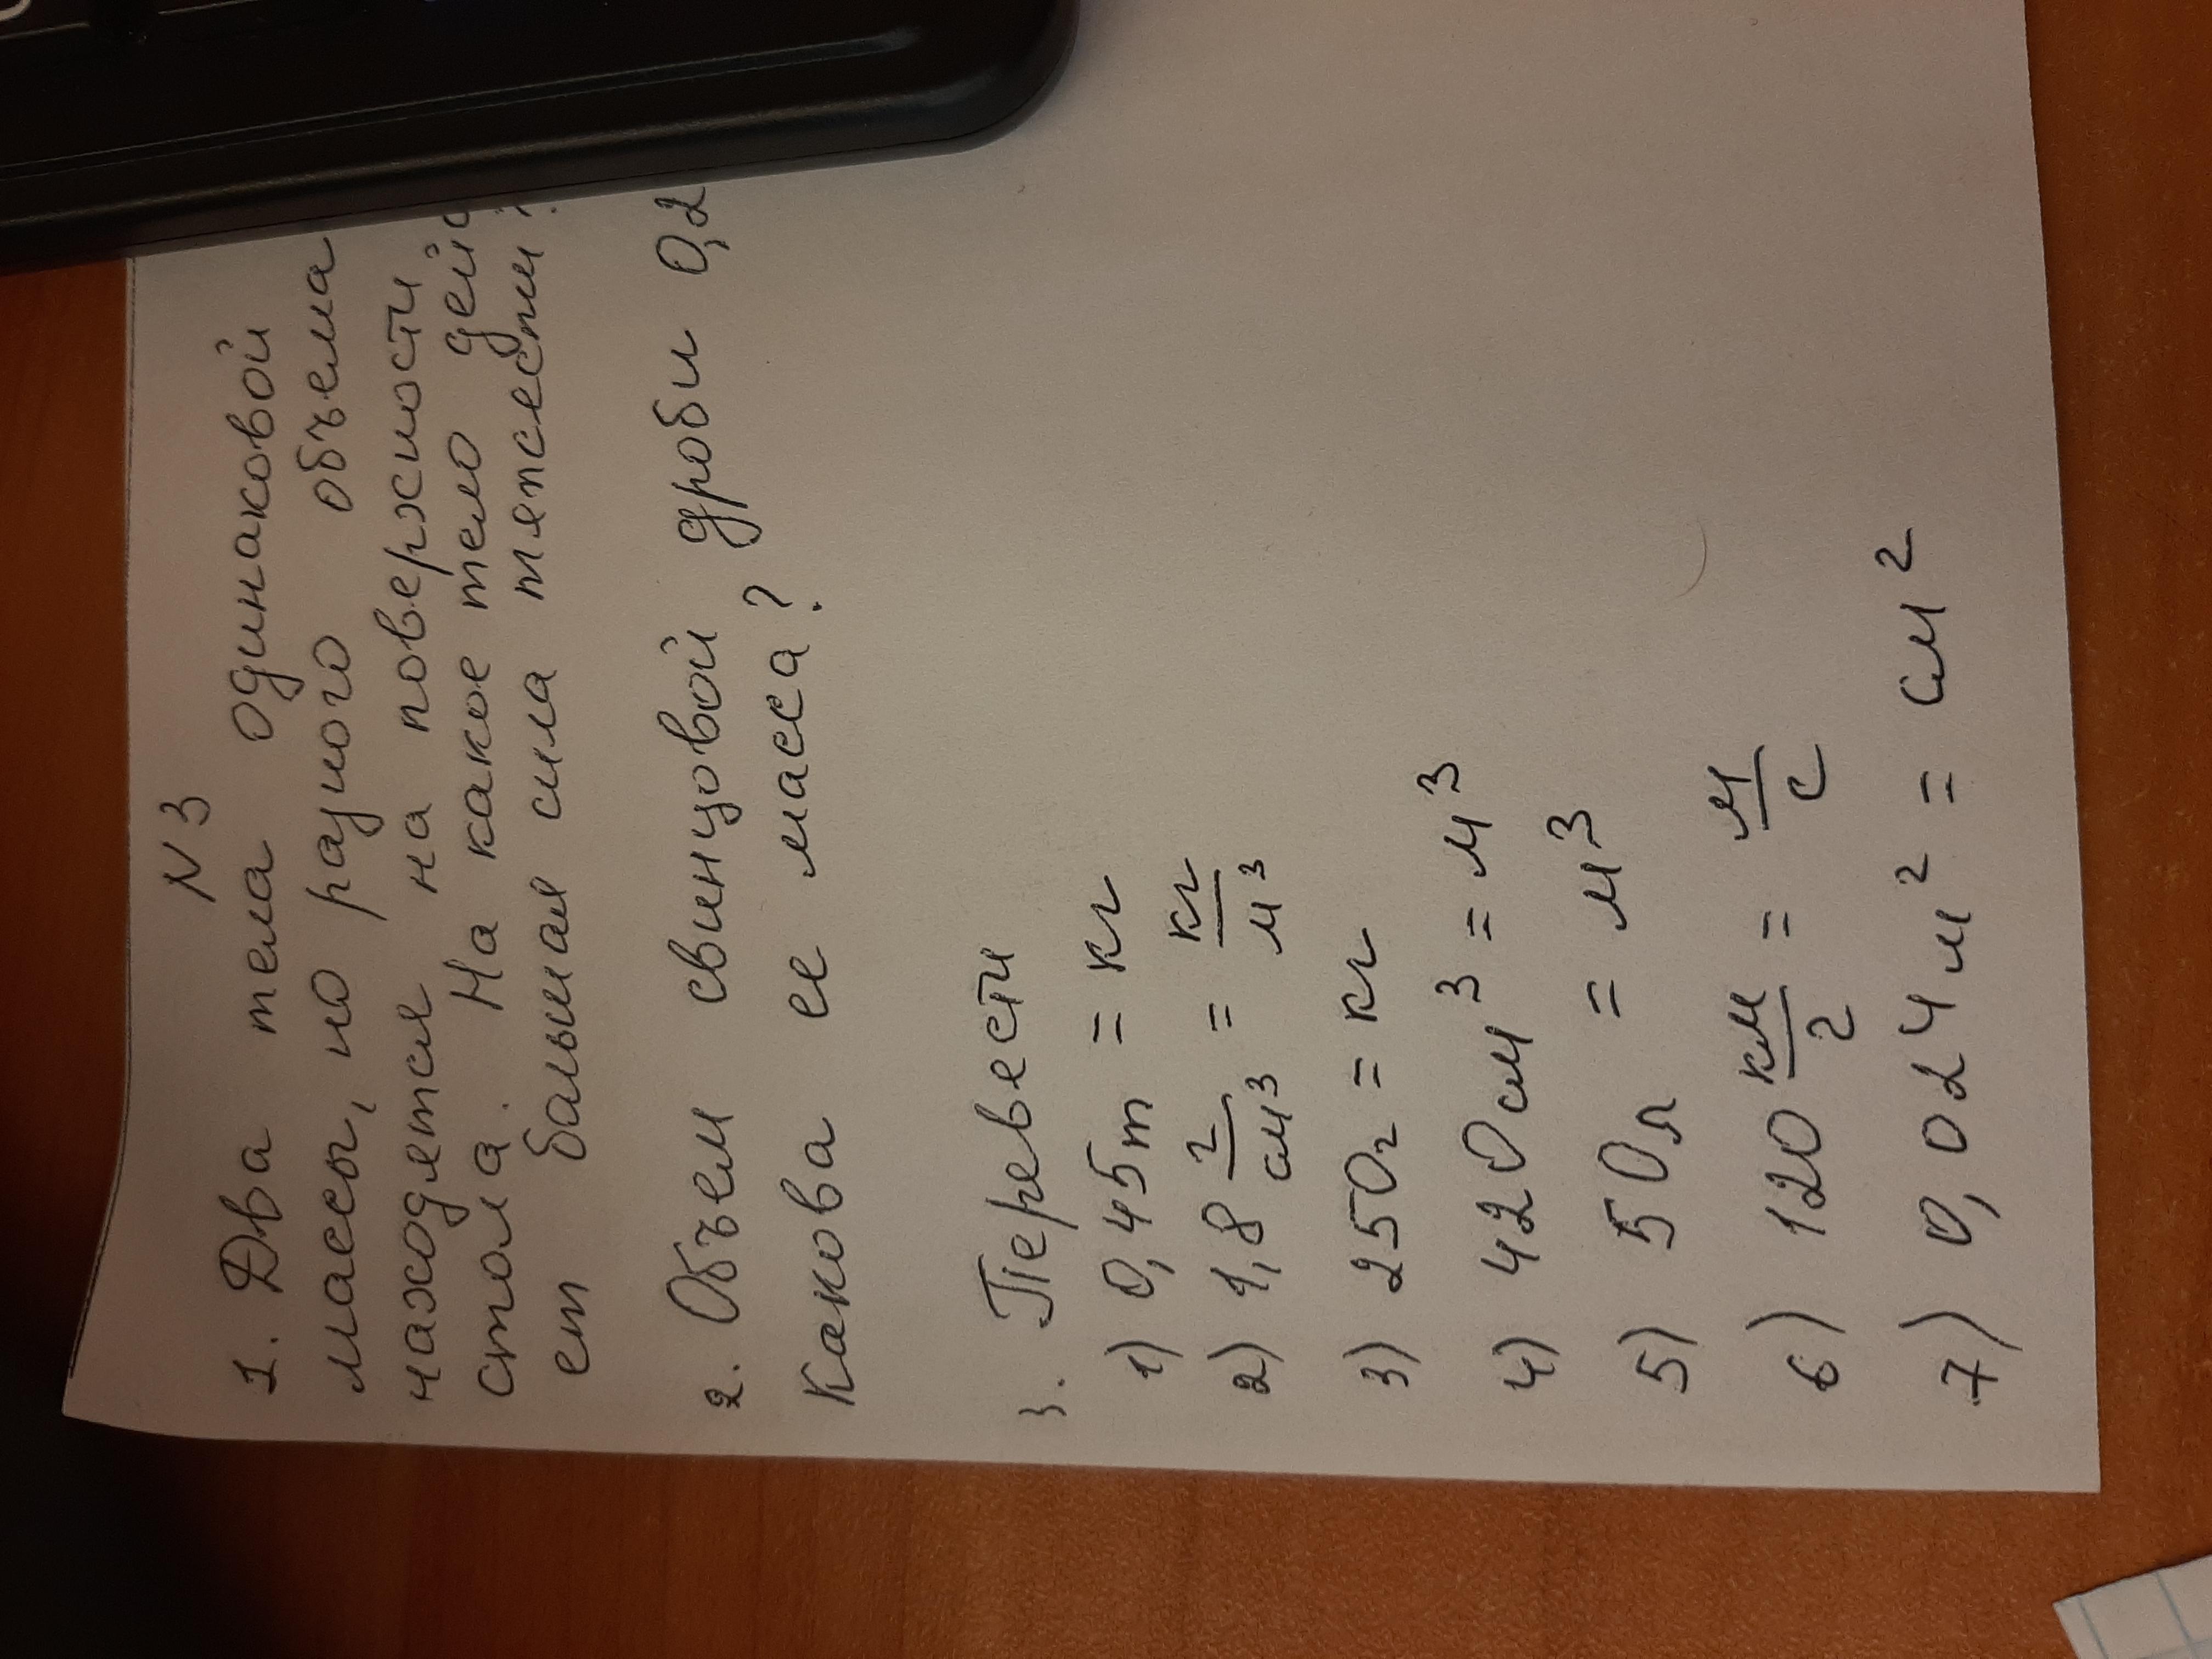 N 3
1. Два тела одинаковой
массы, но разного объема
находятся на поверхности
стола. На какое тело дейс
ет большая сила тяжести?
2. Объем свинцовой дроби 0,2
Какова ее масса?
3. Перевести
1) 0,45т = кг
2) 1,8 г/см³ = кг/м³
3) 250г = кг
4) 420см³ = м³
5) 50л = м³
6) 120 км/г = м/с
7) 0,024м² = см²